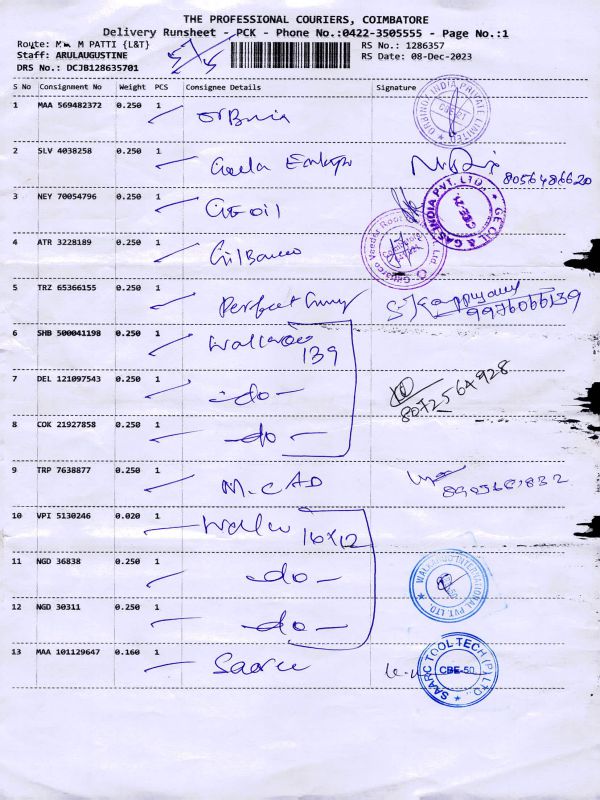 THE PROFESSIONAL COURIERS, COIMBATORE
Delivery Runsheet - PCK - Phone No.:0422-3505555 - Page No.:1
Route: M PATTI {L&T}
RS No.: 1286357
Staff: ARULAUGUSTINE
RS Date: 08-Dec-2023
DRS No.: DCJB128635701
S No Consignment No Weight PCS Consignee Details Signature
1 MAA 569482372 0.250 1
ORBINOX INDIA PRIVATE LIMITED
2 SLV 4038258 0.250 1
8056486620
3 NEY 70054796 0.250 1 GE oil
GE OIL & GAS INDIA PVT. LTD.
4 ATR 3228189 0.250 1 Gilbarco
Gilbarco Veeder Root Ltd.
5 TRZ 65366155 0.250 1 Perfect
9976066139
6 SHB 500041198 0.250 1
139
7 DEL 121097543 0.250 1 -do-
8072564928
8 COK 21927858 0.250 1 -do-
9 TRP 7638877 0.250 1 M.CAD
10 VPI 5130246 0.020 1
16x12
11 NGD 36838 0.250 1 -do-
INTERNATIONAL PVT LTD.
12 NGD 30311 0.250 1 -do-
13 MAA 101129647 0.160 1
SAARC TOOL TECH (P) LTD.
CBE-50